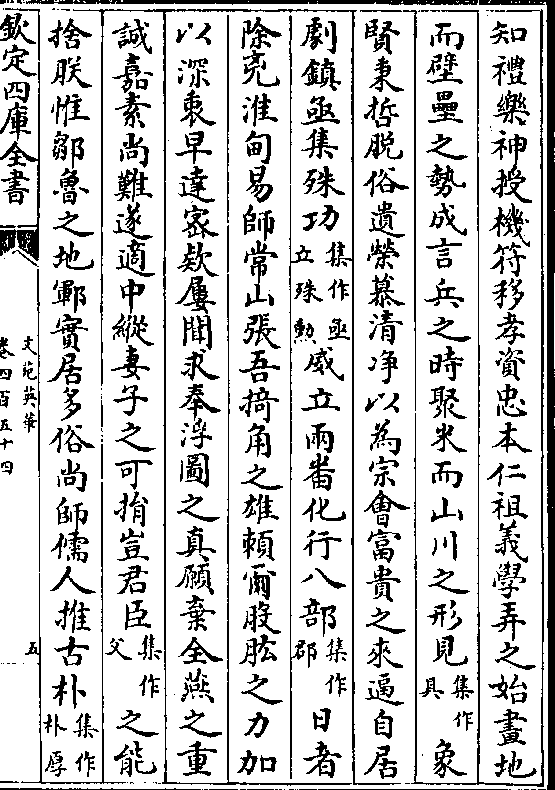 知禮樂神授機符移孝資忠本仁祖義學弄之始畫地
而壁壘之勢成言兵之時聚米而山川之形見集作具象
賢秉哲脱俗遺榮慕清净以為宗會富貴之來逼自居
劇鎮亟集殊功集作亟立殊勲威立兩畨化行八部集作郡日者
除兖淮甸易師常山張吾掎角之雄頼爾股肱之力加
以深衷早達宻欵屢聞求奉浮圖之真願棄全燕之重
誠嘉素尚難遂適中縱妻子之可捐豈君臣集作父之能
捨朕惟鄒魯之地鄆實居多俗尚師儒人推古朴集作朴厚
欽定四庫全書
文苑英華
卷四百五十四
五